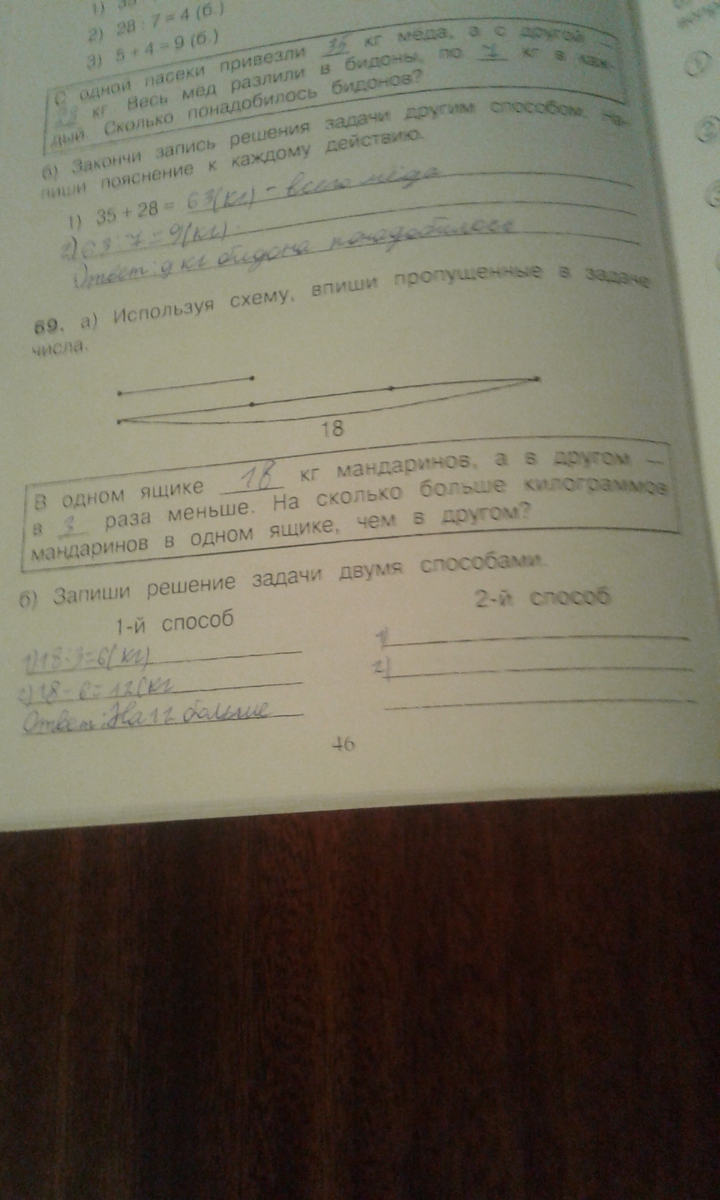 1) 35
2) 28 : 7 = 4 (б.)
3) 5 + 4 = 9 (б.)
С одной пасеки привезли 35 кг мёда, а с другой —
28 кг. Весь мёд разлили в бидоны, по 7 кг в каж-
дый. Сколько понадобилось бидонов?
б) Закончи запись решения задачи другим способом. На-
пиши пояснение к каждому действию.
1) 35 + 28 = 63(кг) - всего мёда
2) 63:7=9(кг).
Ответ: 9 кг бидона понадобилось
69. а) Используя схему, впиши пропущенные в задаче
числа.
18
В одном ящике 18 кг мандаринов, а в другом —
в 3 раза меньше. На сколько больше килограммов
мандаринов в одном ящике, чем в другом?
б) Запиши решение задачи двумя способами.
1-й способ
2-й способ
1) 18:3=6(кг)
1)
2) 18-6=12(кг
2)
Ответ: На 12 больше
46